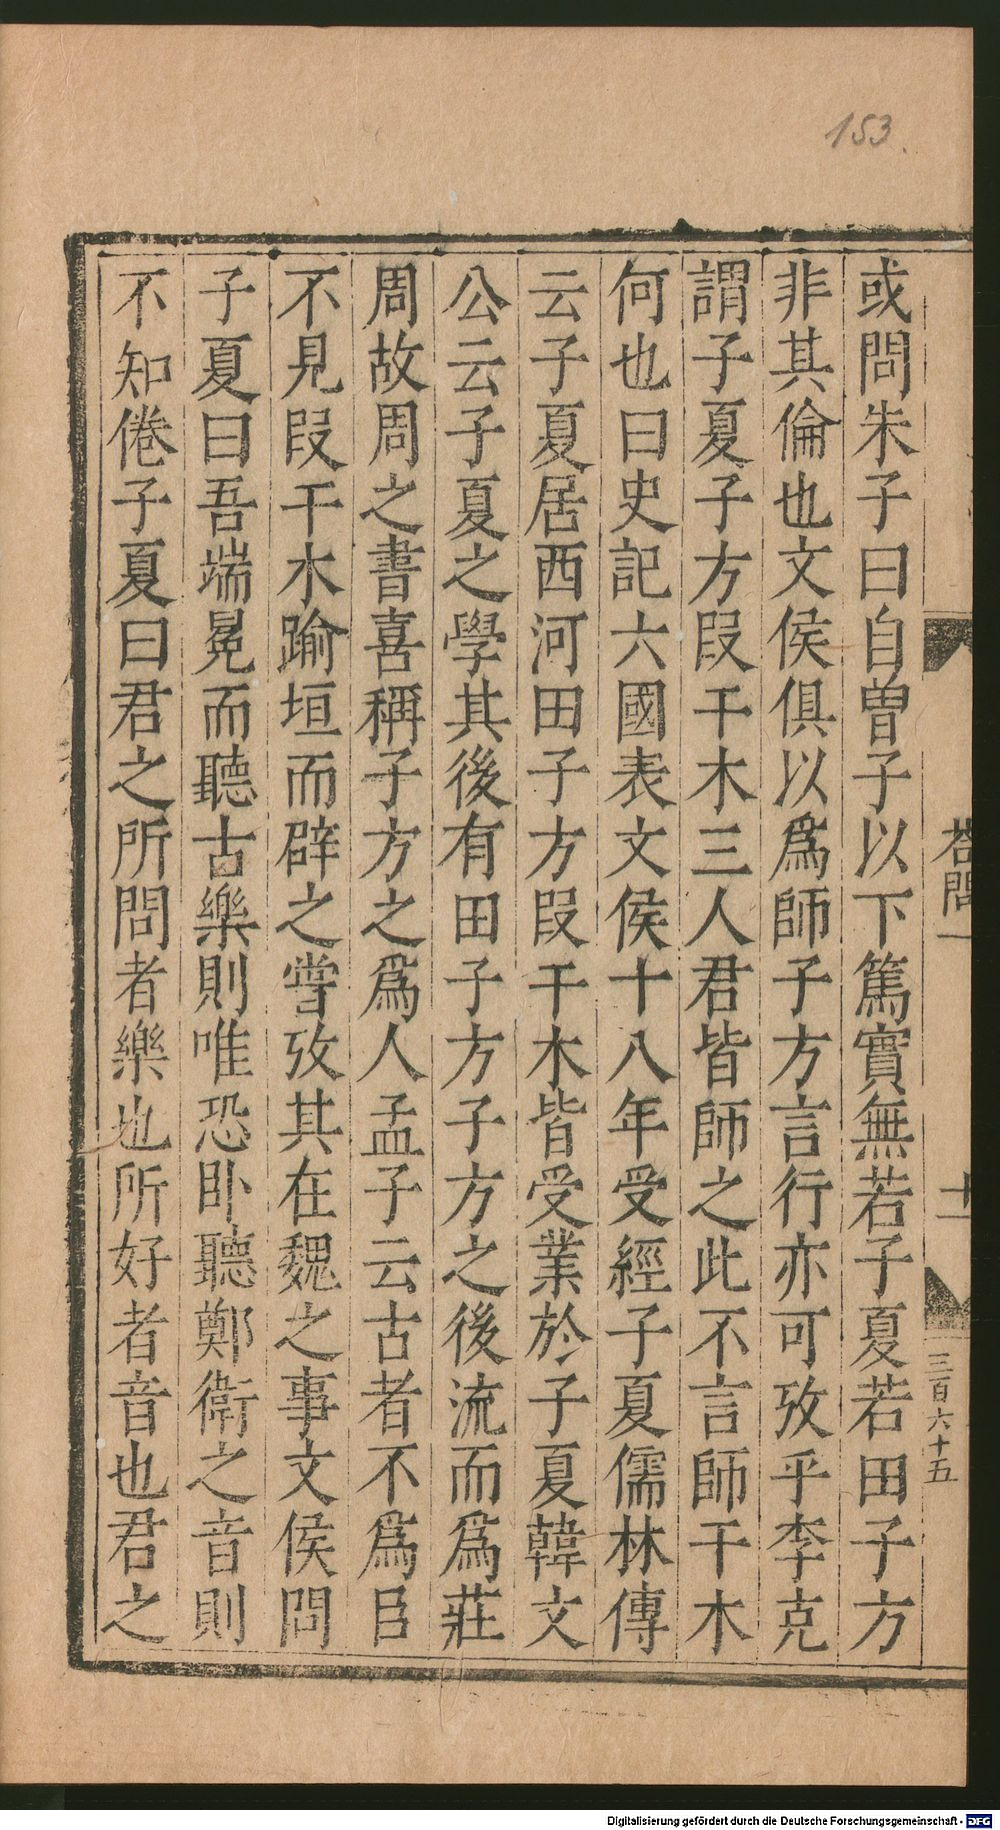 153.
答問一
十一
三百六十五
或問朱子曰自曾子以下篤實無若子夏若田子方
非其倫也文侯俱以爲師子方言行亦可攷乎李克
謂子夏子方段干木三人君皆師之此不言師干木
何也曰史記六國表文侯十八年受經子夏儒林傳
云子夏居西河田子方段干木皆受業於子夏韓文
公云子夏之學其後有田子方子方之後流而爲莊
周故周之書喜稱子方之爲人孟子云古者不爲臣
不見段干木踰垣而辟之嘗攷其在魏之事文侯問
子夏曰吾端冕而聽古樂則唯恐卧聽鄭衛之音則
不知倦子夏曰君之所問者樂也所好者音也君之
Digitalisierung gefördert durch die Deutsche Forschungsgemeinschaft - DFG